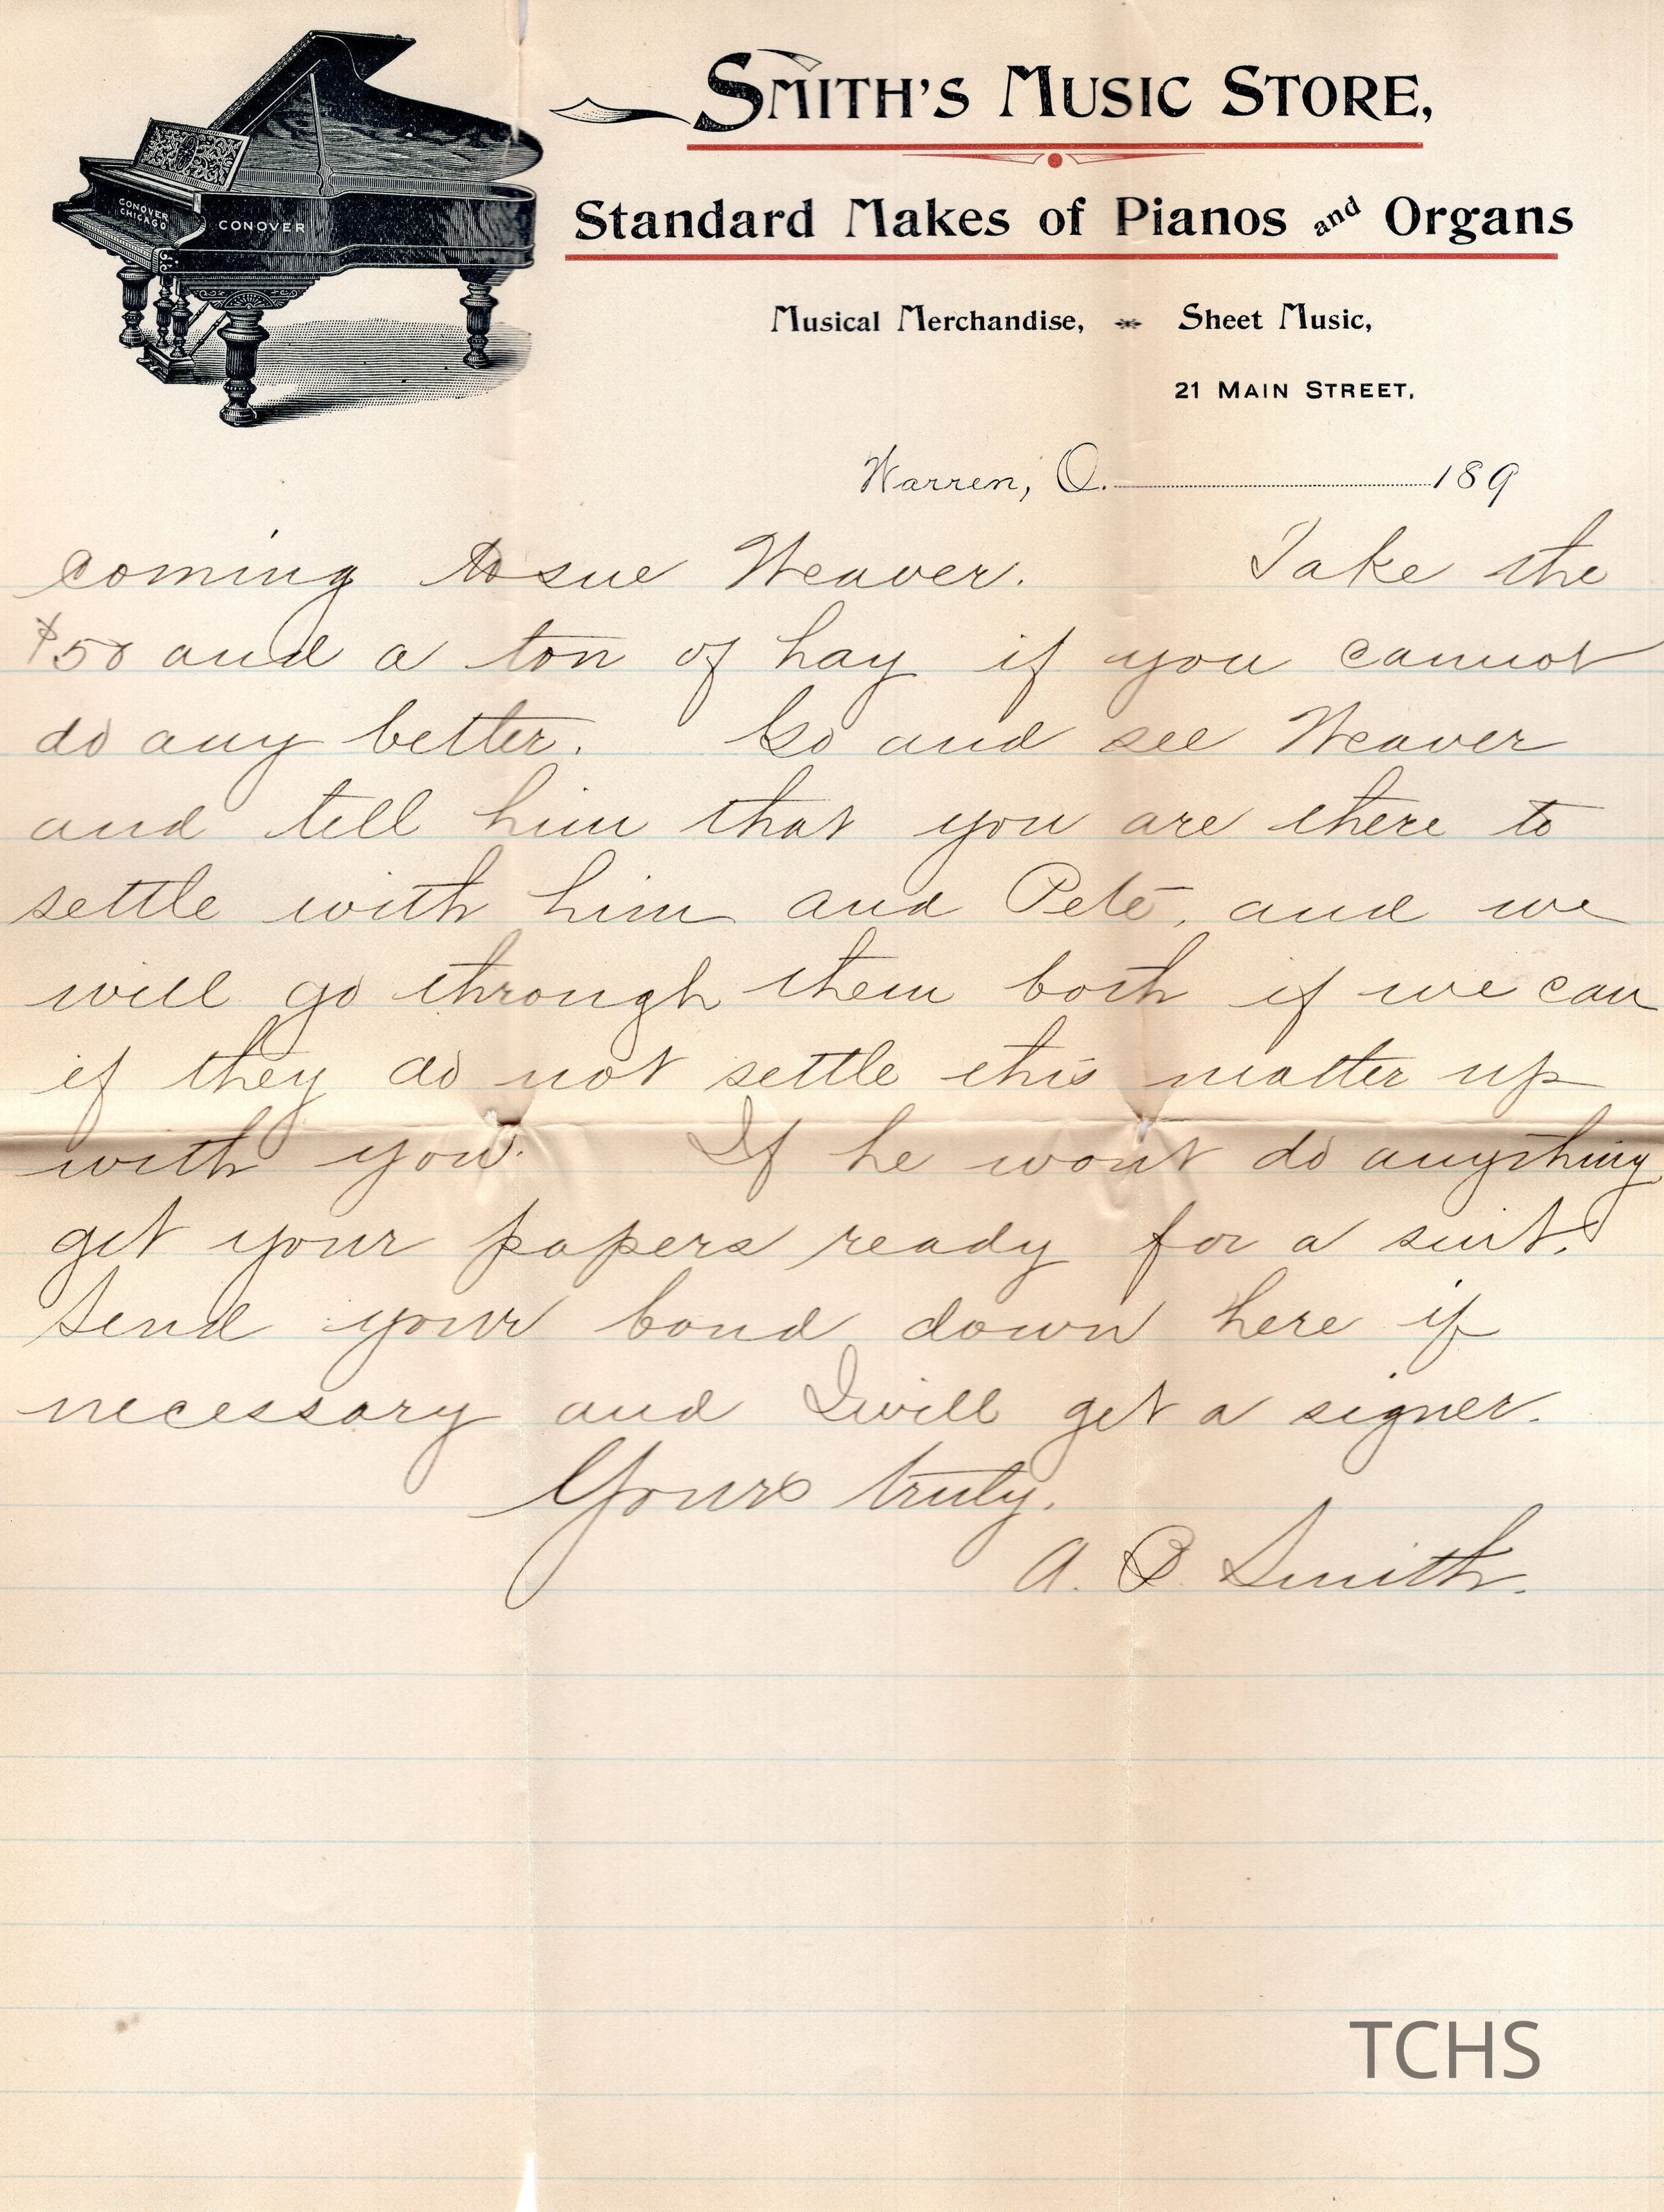 SMITH'S MUSIC STORE,
Standard Makes of Pianos and Organs
Musical Merchandise, Sheet Music,
21 MAIN STREET,
CONOVER
CHICAGO
CONOVER
Warren, O. 189
coming to sue Weaver. Take the
$50 and a ton of hay if you cannot
do any better. Go and see Weaver
and tell him that you are there to
settle with him and Pete, and we
will go through them both if we can
if they do not settle this matter up
with you. If he wont do anything
get your papers ready for a suit.
Send your bond down here if
necessary and I will get a signer.
Yours truly.
A. B. Smith.
TCHS